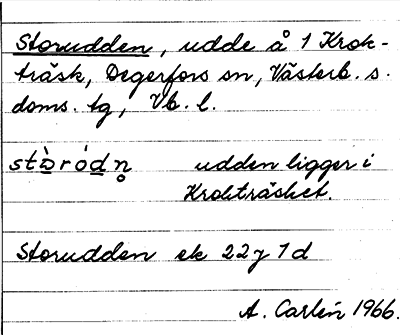 Storudden, udde å 1 Krok-
träsk, Degerfors sn, Västerb. s.
doms. tg, Vb. l.
stɔ̀ródn̥ udden ligger i
Krokträsket.
Storudden ek 22 y 1 d
A. Carlén 1966.